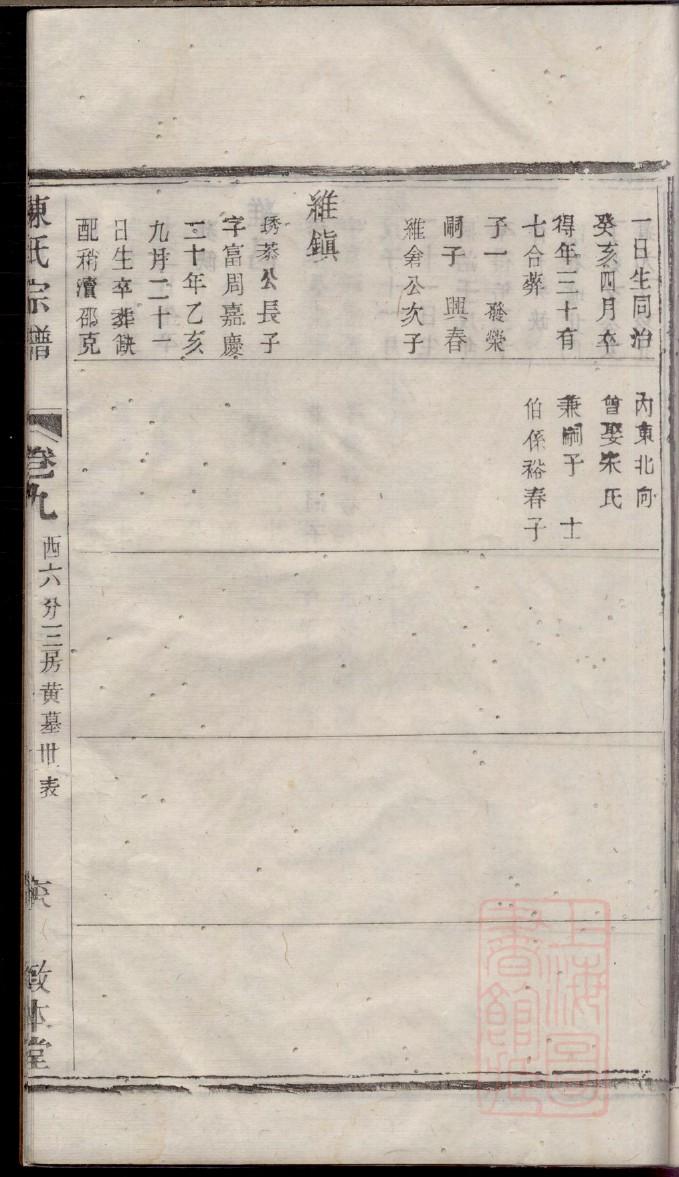 一日生同治
癸亥四月卒
得年三十有
七合葬
子一 發榮
嗣子 興春
維翁公次子
維鎮
琇萘公長子
字富周嘉慶
二十年乙亥
九月二十一
日生卒葬缺
配稍瀆邵克
內東北向
曾娶朱氏
兼嗣子 士
伯係裕春子
陳氏宗譜
卷九
西六分三房黄墓世表
敬本堂
上海圖書館藏